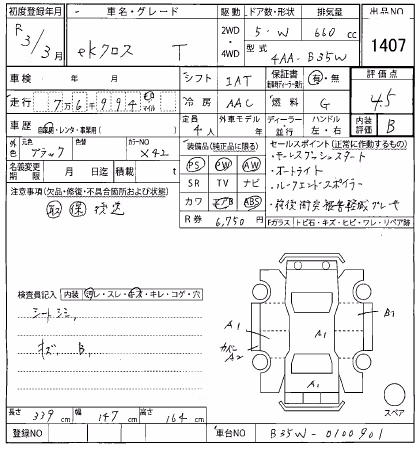 初度登録年月 車名・グレード 駆動 ドア数・形状 排気量 出品NO
R3/3月 eKクロス T 2WD・4WD 5・W 660cc 1407
型式 4AA-B35W
車検 年 月 シフト IAT 保証書 有・無 評価点
走行 7万6千994 km マイル 冷房 AAC 燃料 G 4.5
車歴 自家用・レンタ・事業用( ) 定員 4人 外車モデル 年 ディーラー・並行 ハンドル 左・右 内装評価 B
外色 元色 ブラック 色替 カラーNO X42
名義変更期限 月 日迄 積載 t
装備品(純正品に限る) セールスポイント(正常に作動するもの)
PS PW AW ・キーレスプッシュスタート
SR TV ナビ ・オートライト
カワ エアB ABS ・ルーフエンドスポイラー
R券 6,750円
注意事項(欠品・修復・不具合箇所および状態)
取 保 後送
Fガラス トビ石・キズ・ヒビ・ワレ・リペア跡
検査員記入 内装 汚レ・スレ・キズ・キレ・コゲ・穴
シートシミ
キズ、B、
A1
A2
A1
A1
B1
スペア
長さ 339cm 幅 147cm 高さ 164cm
登録NO 車台NO B35W-0100901